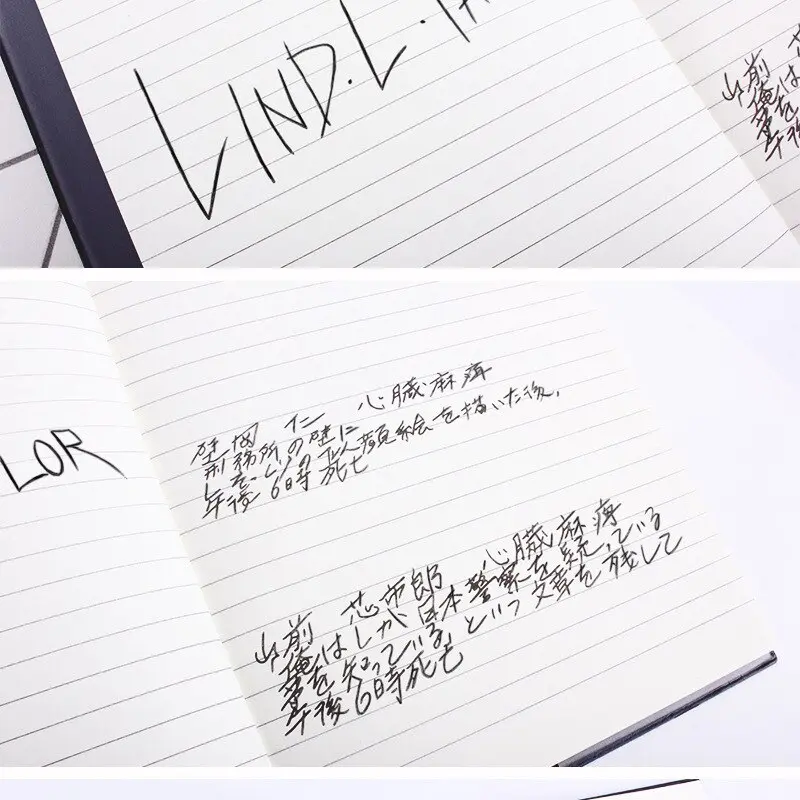 LIND.L.
山前
俺は
事を
午後
LOR
仁 心臓麻痺
刑務所の壁に
人顔絵を描いた後、
午後6時死亡
山前 芯市郎 心臓麻痺
俺はLが日本警察を疑っている
事を知っている、という文章を残して
午後6時死亡